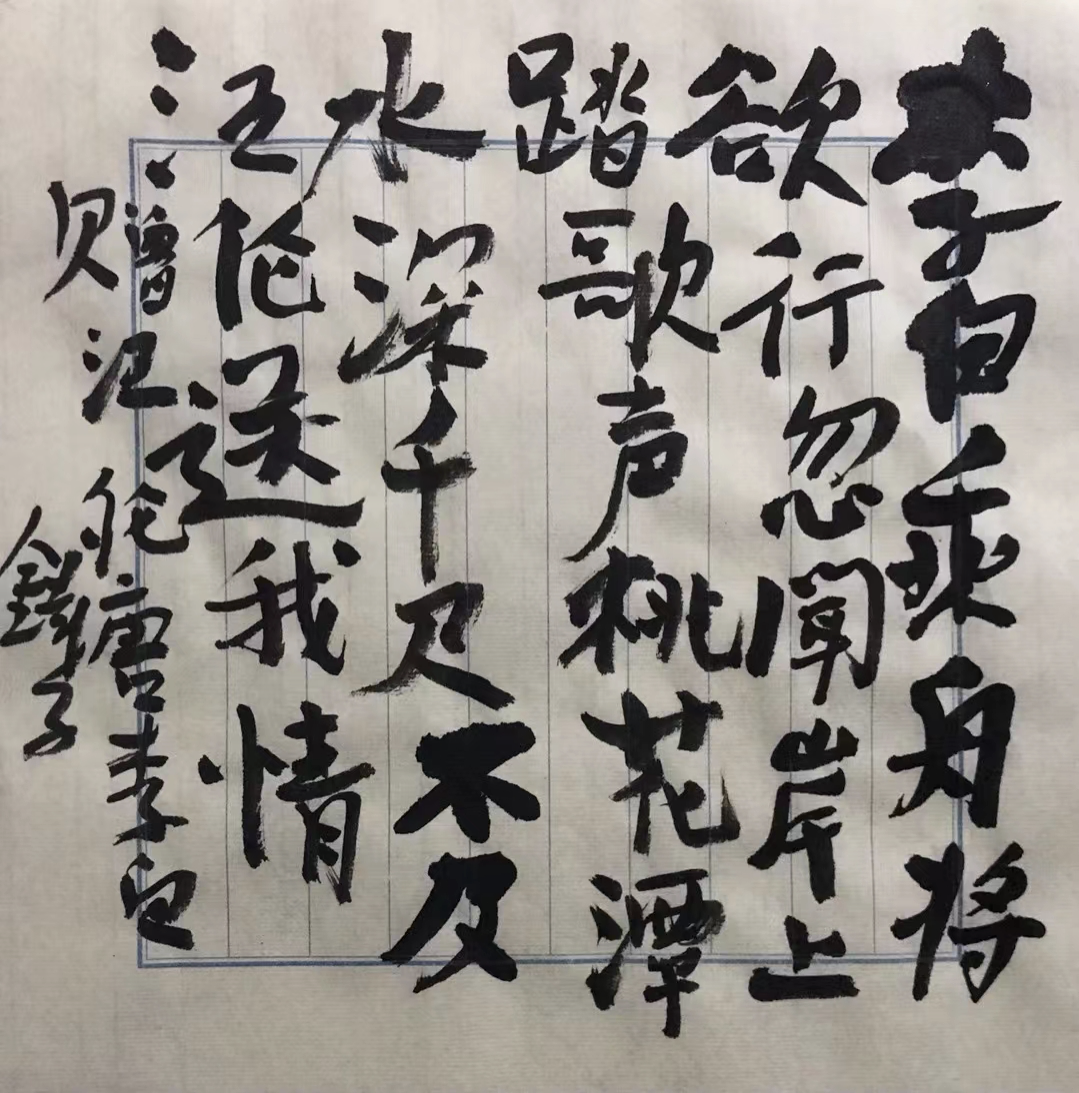 李白乘舟将
欲行忽闻岸上
踏歌声桃花潭
水深千尺不及
汪伦送我情
赠汪伦唐李白